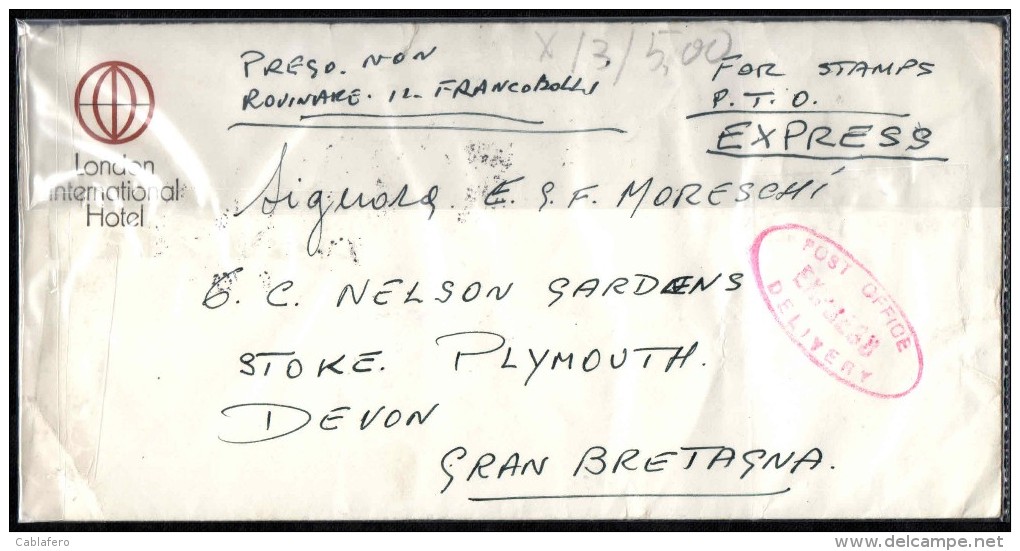 x/3/5,00
PREGO. NON
ROVINARE. IL FRANCOBOLLI
FOR STAMPS
P.T.O.
EXPRESS
London
International
Hotel
Signora. E. G. F. MORESCHI
6. C. NELSON GARDENS
STOKE. PLYMOUTH.
DEVON
GRAN BRETAGNA.
POST OFFICE
EXPRESS
DELIVERY
Cablafero
delcampe.net